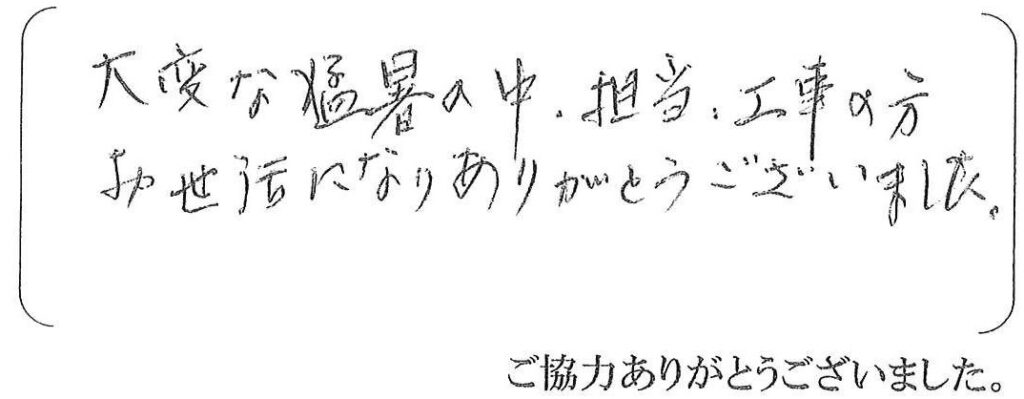 大変な猛暑の中、担当、工事の方
お世話になりありがとうございました。
ご協力ありがとうございました。